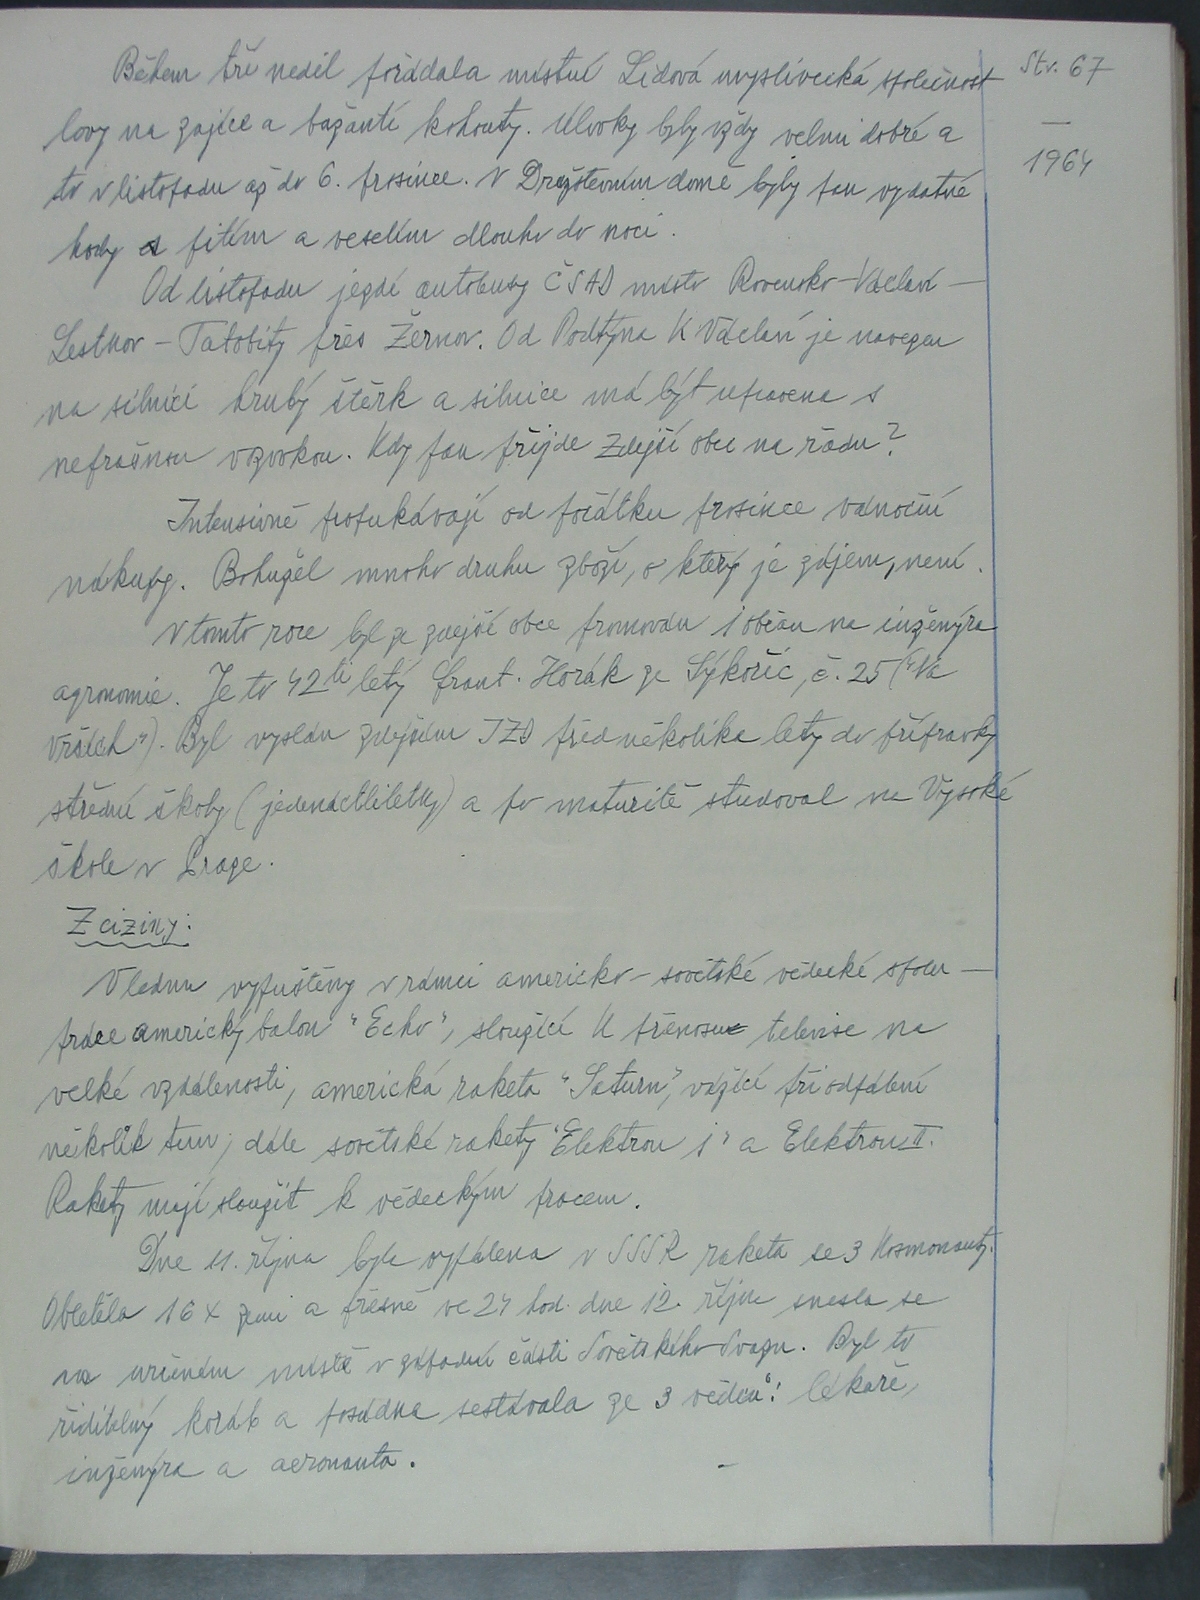 Str. 67
—
1964
Během tří neděl pořádala místní Lidová myslivecká společnost
lovy na zajíce a bažantí kohouty. Úlovky byly vždy velmi dobré a
to v listopadu až do 6. prosince. V Družstevním domě byly pak vydatné
hody s pitím a veselím dlouho do noci.
Od listopadu jezdí autobusy ČSAD místo Rovensko – Václaví –
Lestkov – Tatobity přes Žernov. Od Podtýna k Václaví je navezen
na silnici hrubý štěrk a silnice má být upravena s
neprašnou vozovkou. Kdy pak přijde zdejší obec na řadu?
Intensivně probukávají od počátku prosince vánoční
nákupy. Bohužel mnoho druhu zboží, o který je zájem, není.
V tomto roce byl ze zdejší obce promován 1 občan na inženýra
agronomie. Je to 42tiletý Frant. Horák ze Sýkořic, č. 25 ("Na
Vrších"). Byl vyslán zdejším JZD před několika lety do přípravky
střední školy (jedenáctiletky) a po maturitě studoval na Vysoké
škole v Praze.
Z ciziny:
V lednu vypuštěny v rámci americko – sovětské vědecké spolu –
práce americký balon "Echo", sloužící k přenosu televise na
velké vzdálenosti, americká raketa "Saturn", vážící při odpálení
několik tun; dále sovětské rakety "Elektron 1" a Elektron II.
Rakety mají sloužit k vědeckým pracem.
Dne 11. října byla vypálena v SSSR raketa se 3 kosmonauty.
Obletěla 16 x zemi a přesně ve 24 hod. dne 12. října snesla se
na určeném místě v západní části Sovětského Svazu. Byl to
říditelný koráb a posádka sestávala ze 3 vědců: lékaře,
inženýra a aeronauta.